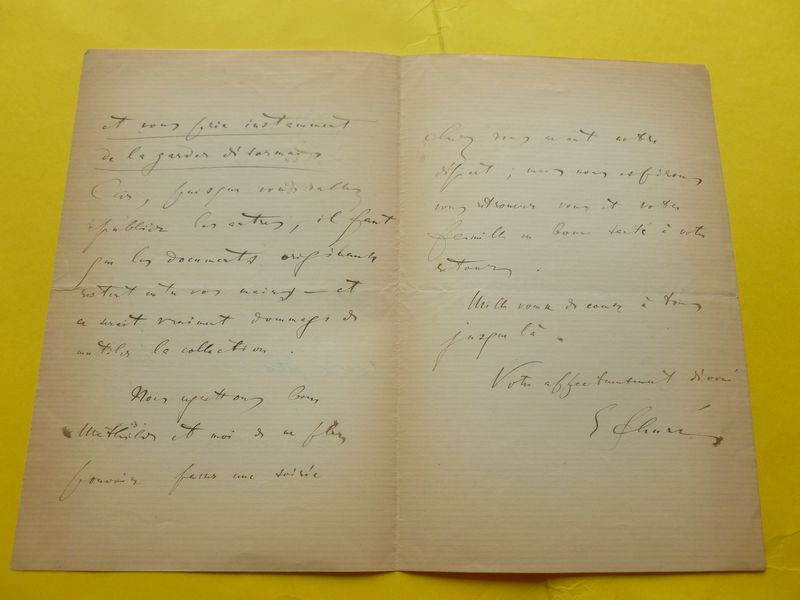 et vous prie instamment
de la garder désormais
Car, puisque vous allez
publier les autres, il faut
que les documents originaux
restent entre vos mains — et
ce serait vraiment dommage de
mutiler la collection.
Nous regrettons tous
Mathilde et moi de ne plus
pouvoir passer une soirée
chez vous avant votre
départ ; mais nous espérons
vous retrouver vous et votre
famille en bonne santé à votre
retour.
Mille vœux de cœur à tous
jusque là.
Votre affectueusement dévoué
E Schuré